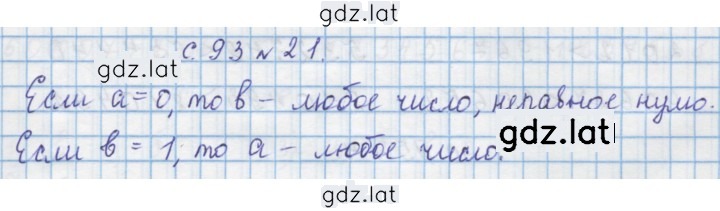 gdz.lat
с. 93 № 21.
gdz.lat
Если a=0, то в - любое число, неравное нулю.
gdz.lat
Если в = 1, то а - любое число.
gdz.lat